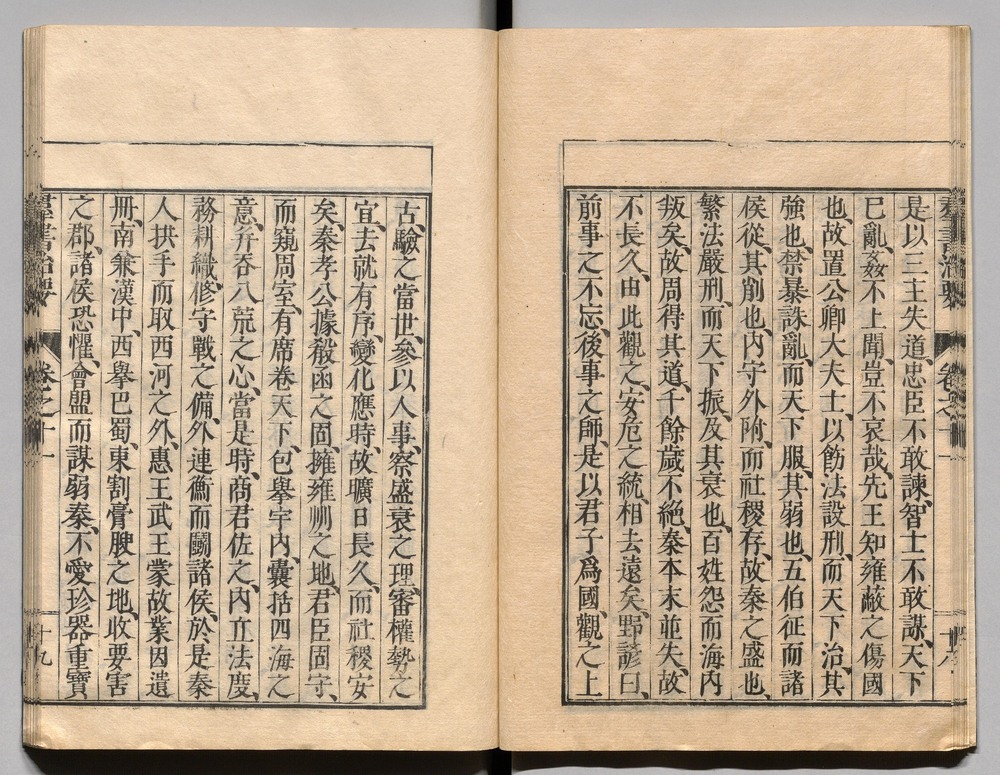 是以三主失道、忠臣不敢諫、智士不敢謀、天下
已亂、姦不上聞、豈不哀哉、先王知雍蔽之傷國
也、故置公卿大夫士、以飭法設刑、而天下治、其
強也、禁暴誅亂、而天下服、其弱也、五伯征而諸
侯從、其削也、內守外附、而社稷存、故秦之盛也、
繁法嚴刑、而天下振、及其衰也、百姓怨而海內
叛矣、故周得其道、千餘歲不絕、秦本末並失、故
不長久、由此觀之、安危之統、相去遠矣、野諺曰、
前事之不忘、後事之師、是以君子爲國、觀之上
古、驗之當世、參以人事、察盛衰之理、審權勢之
宜、去就有序、變化應時、故曠日長久、而社稷安
矣、秦孝公據殽函之固、擁雍州之地、君臣固守、
而窺周室、有席卷天下、包擧宇內、囊括四海之
意、幷吞八荒之心、當是時、商君佐之、內立法度、
務耕織、修守戰之備、外連衡而鬪諸侯、於是秦
人拱手而取西河之外、惠王武王蒙故業因遺
冊、南兼漢中、西擧巴蜀、東割膏腴之地、收要害
之郡、諸侯恐懼、會盟而謀弱秦、不愛珍器重寶
羣書治要
卷之十一
十九